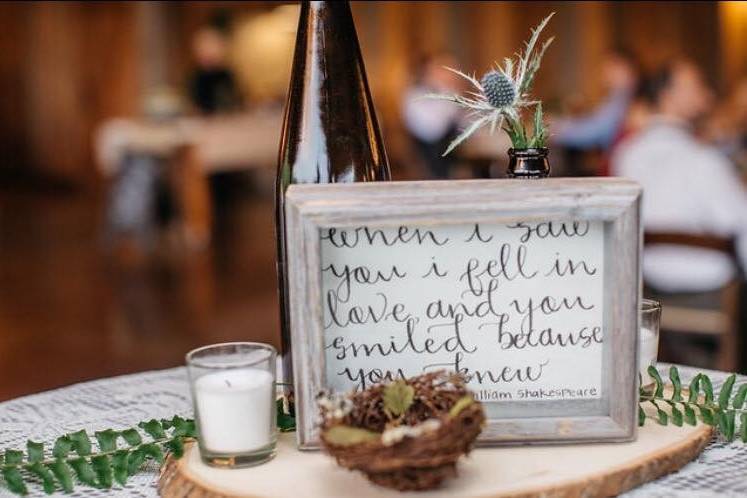 when i saw
you i fell in
love and you
smiled because
you knew
william shakespeare